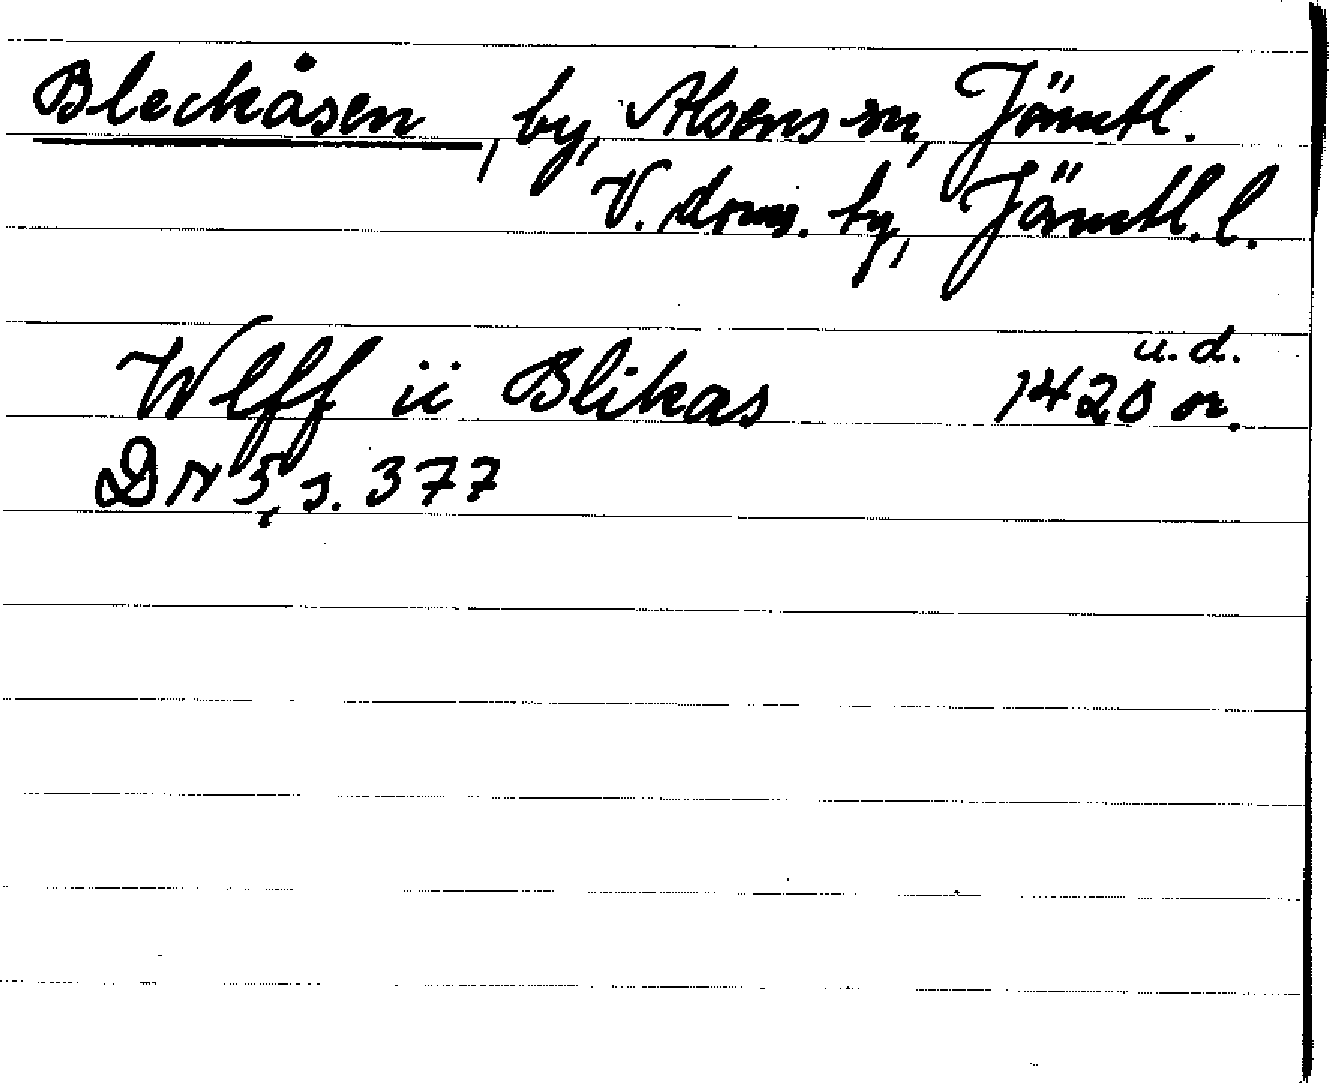 Bleckåsen, by, Alsens sn, Jämtl.
V. doms. by, Jämtl. l.
Wlff ii Blikas 1420 u.d. or.
DN 5, s. 377